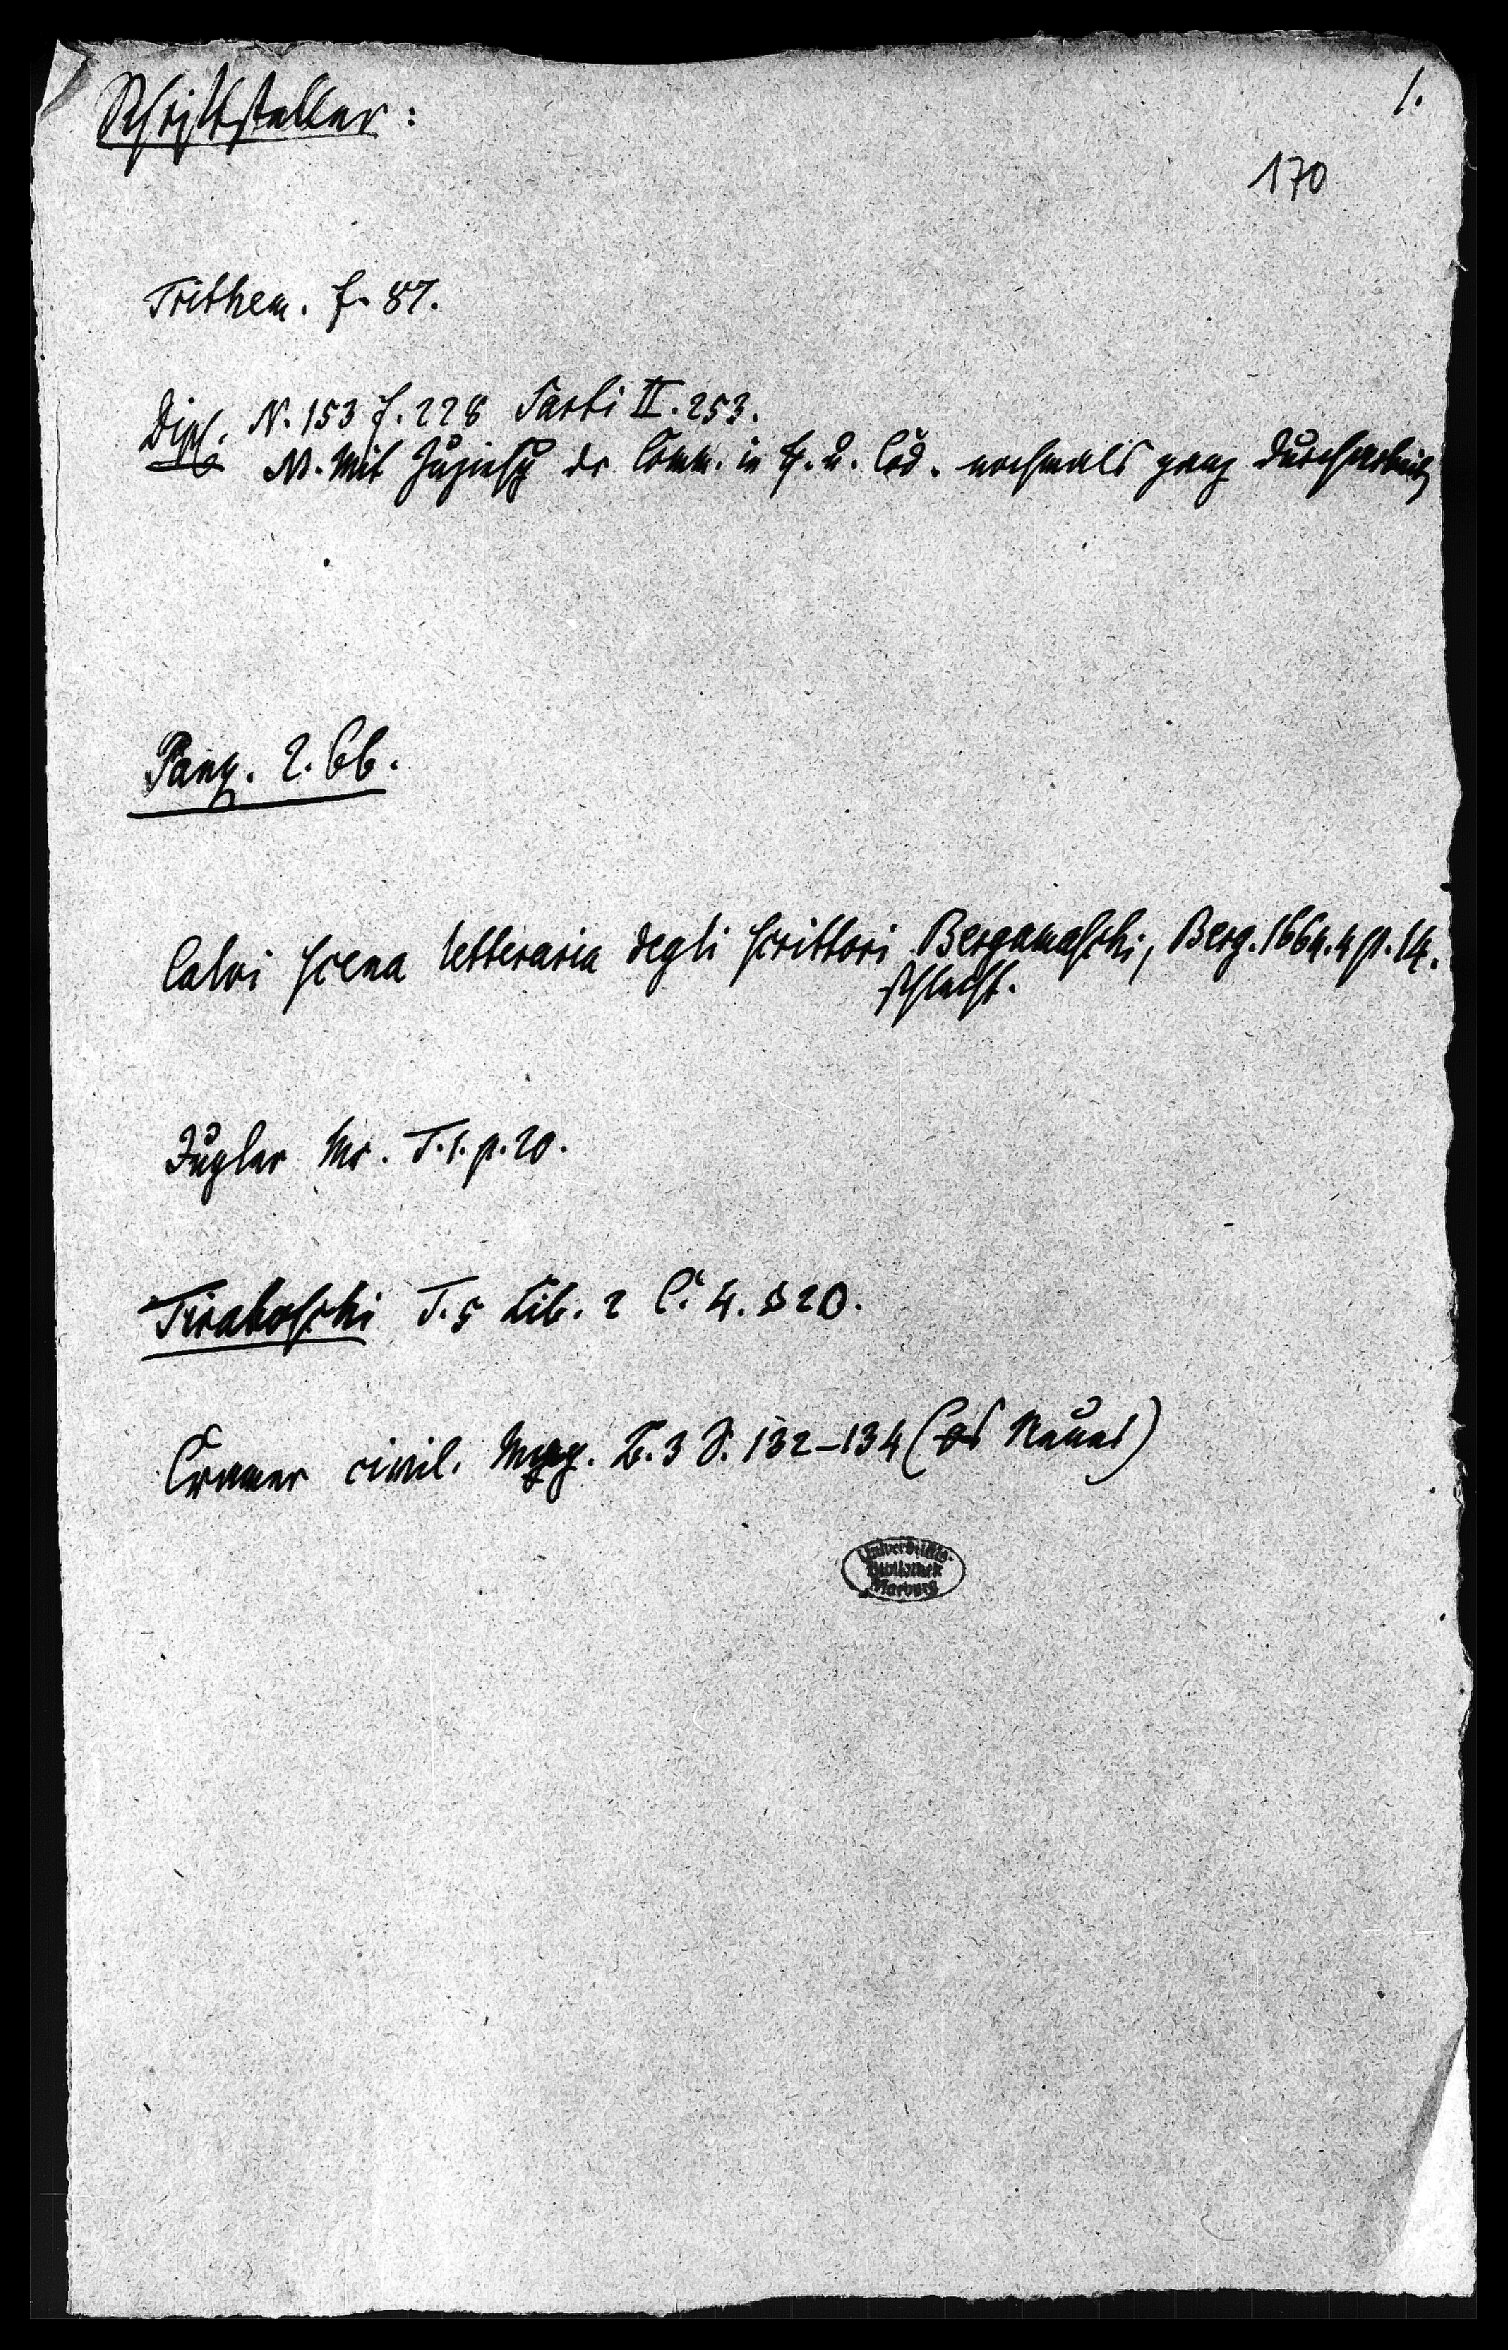 Schriftsteller:
1.
170
Trithem. f. 87.
Dipl. N. 153 f. 228 Sarti II. 253.
N. mit Zuziehg dr Comm. in ff. u. Cod. nochmals ganz durcharbeiten
Panz. 2. 66.
Calvi scena letteraria degli scrittori Bergamaschi, Berg. 1664. 4 p. 14.
schlecht.
Jugler Mr. T. 1. p. 20.
Tiraboschi T. 5 Lib. 2 C. 4. § 20.
Cramer civil. Mag. B. 3 S. 132–134 (Neues)
Universitäts-
Bibliothek
Marburg